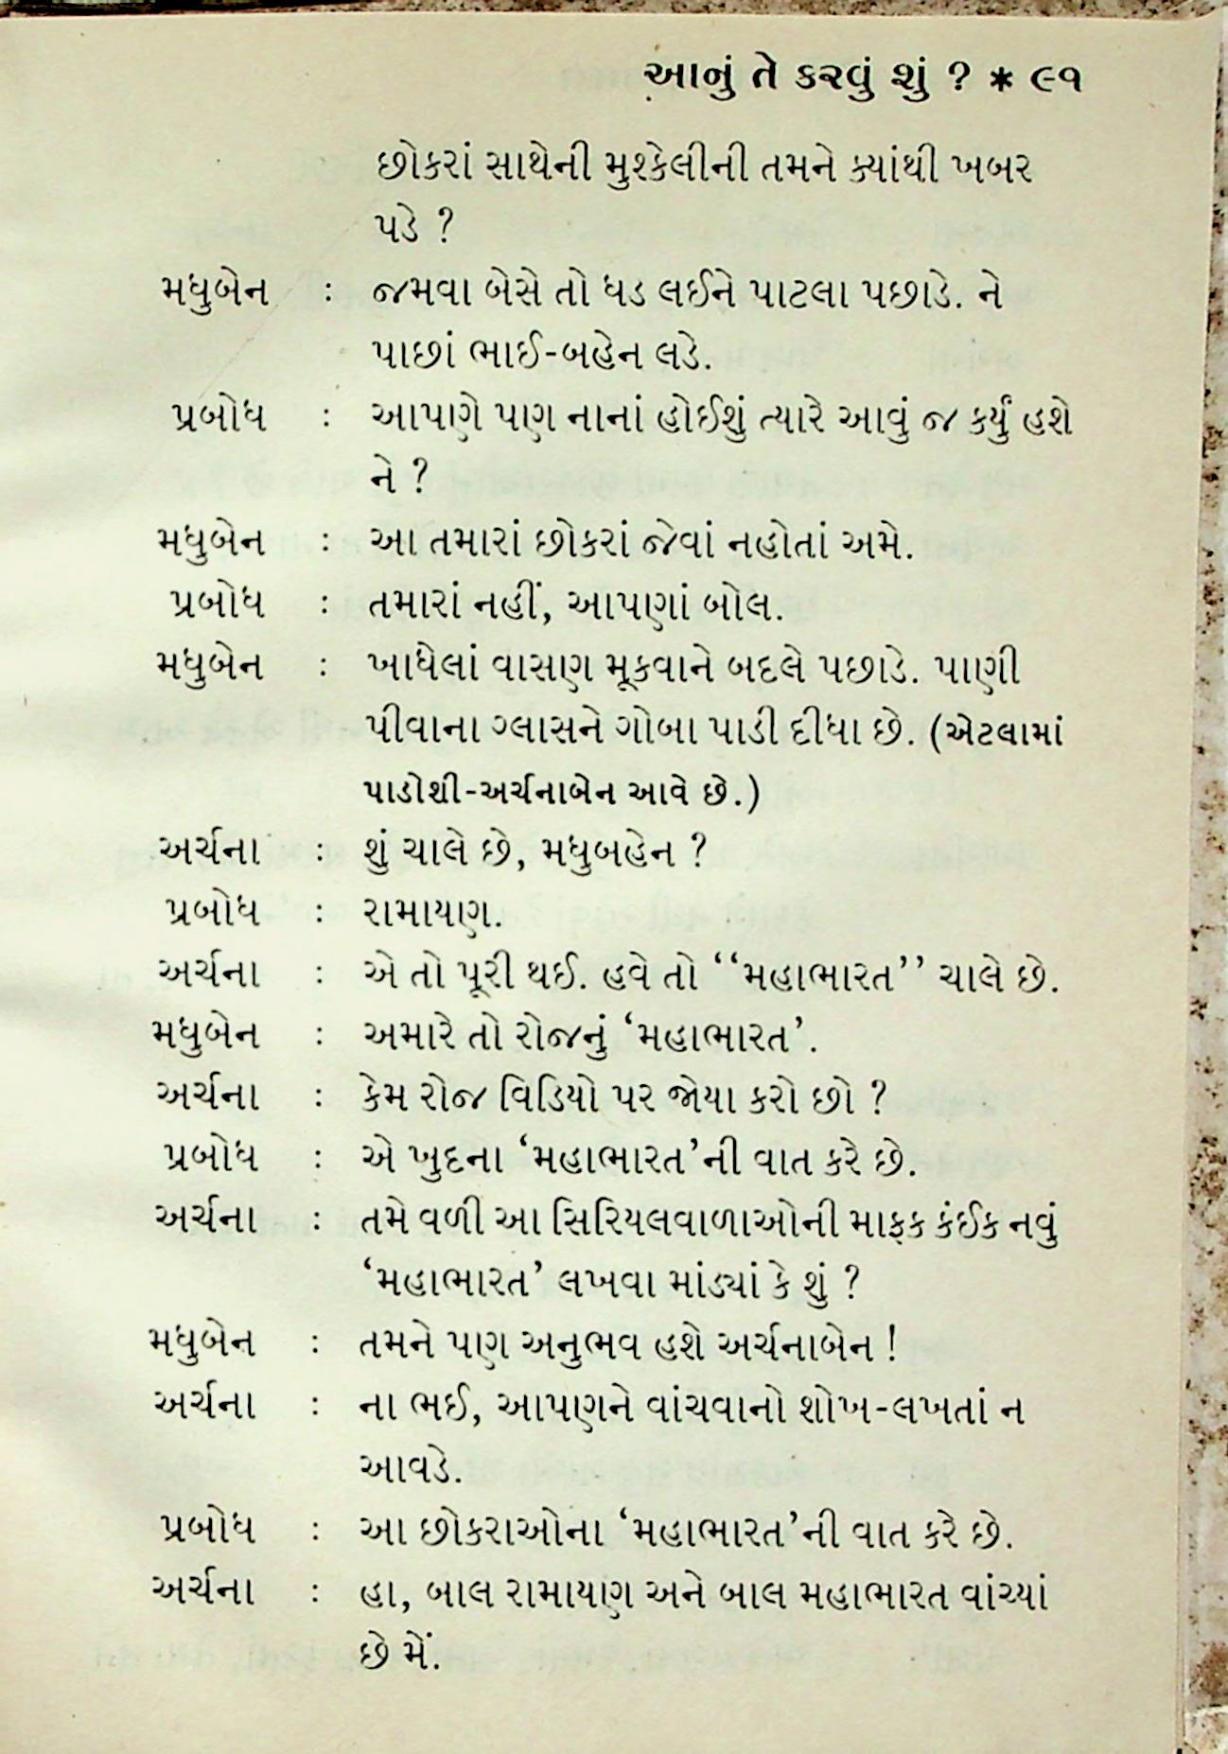 આનું તે કરવું શું ? * ૯૧
છોકરાં સાથેની મુશ્કેલીની તમને ક્યાંથી ખબર
પડે ?
મધુબેન : જમવા બેસે તો ધડ લઈને પાટલા પછાડે. ને
પાછાં ભાઈ-બહેન લડે.
પ્રબોધ : આપણે પણ નાનાં હોઈશું ત્યારે આવું જ કર્યું હશે
ને ?
મધુબેન : આ તમારાં છોકરાં જેવાં નહોતાં અમે.
પ્રબોધ : તમારાં નહીં, આપણાં બોલ.
મધુબેન : ખાધેલાં વાસણ મૂકવાને બદલે પછાડે. પાણી
પીવાના ગ્લાસને ગોબા પાડી દીધા છે. (એટલામાં
પાડોશી-અર્ચનાબેન આવે છે.)
અર્ચના : શું ચાલે છે, મધુબહેન ?
પ્રબોધ : રામાયણ.
અર્ચના : એ તો પૂરી થઈ. હવે તો ‘‘મહાભારત’’ ચાલે છે.
મધુબેન : અમારે તો રોજનું ‘મહાભારત’.
અર્ચના : કેમ રોજ વિડિયો પર જોયા કરો છો ?
પ્રબોધ : એ ખુદના ‘મહાભારત’ની વાત કરે છે.
અર્ચના : તમે વળી આ સિરિયલવાળાઓની માફક કંઈક નવું
‘મહાભારત’ લખવા માંડ્યાં કે શું ?
મધુબેન : તમને પણ અનુભવ હશે અર્ચનાબેન !
અર્ચના : ના ભઈ, આપણને વાંચવાનો શોખ-લખતાં ન
આવડે.
પ્રબોધ : આ છોકરાઓના ‘મહાભારત’ની વાત કરે છે.
અર્ચના : હા, બાલ રામાયણ અને બાલ મહાભારત વાંચ્યાં
છે મેં.